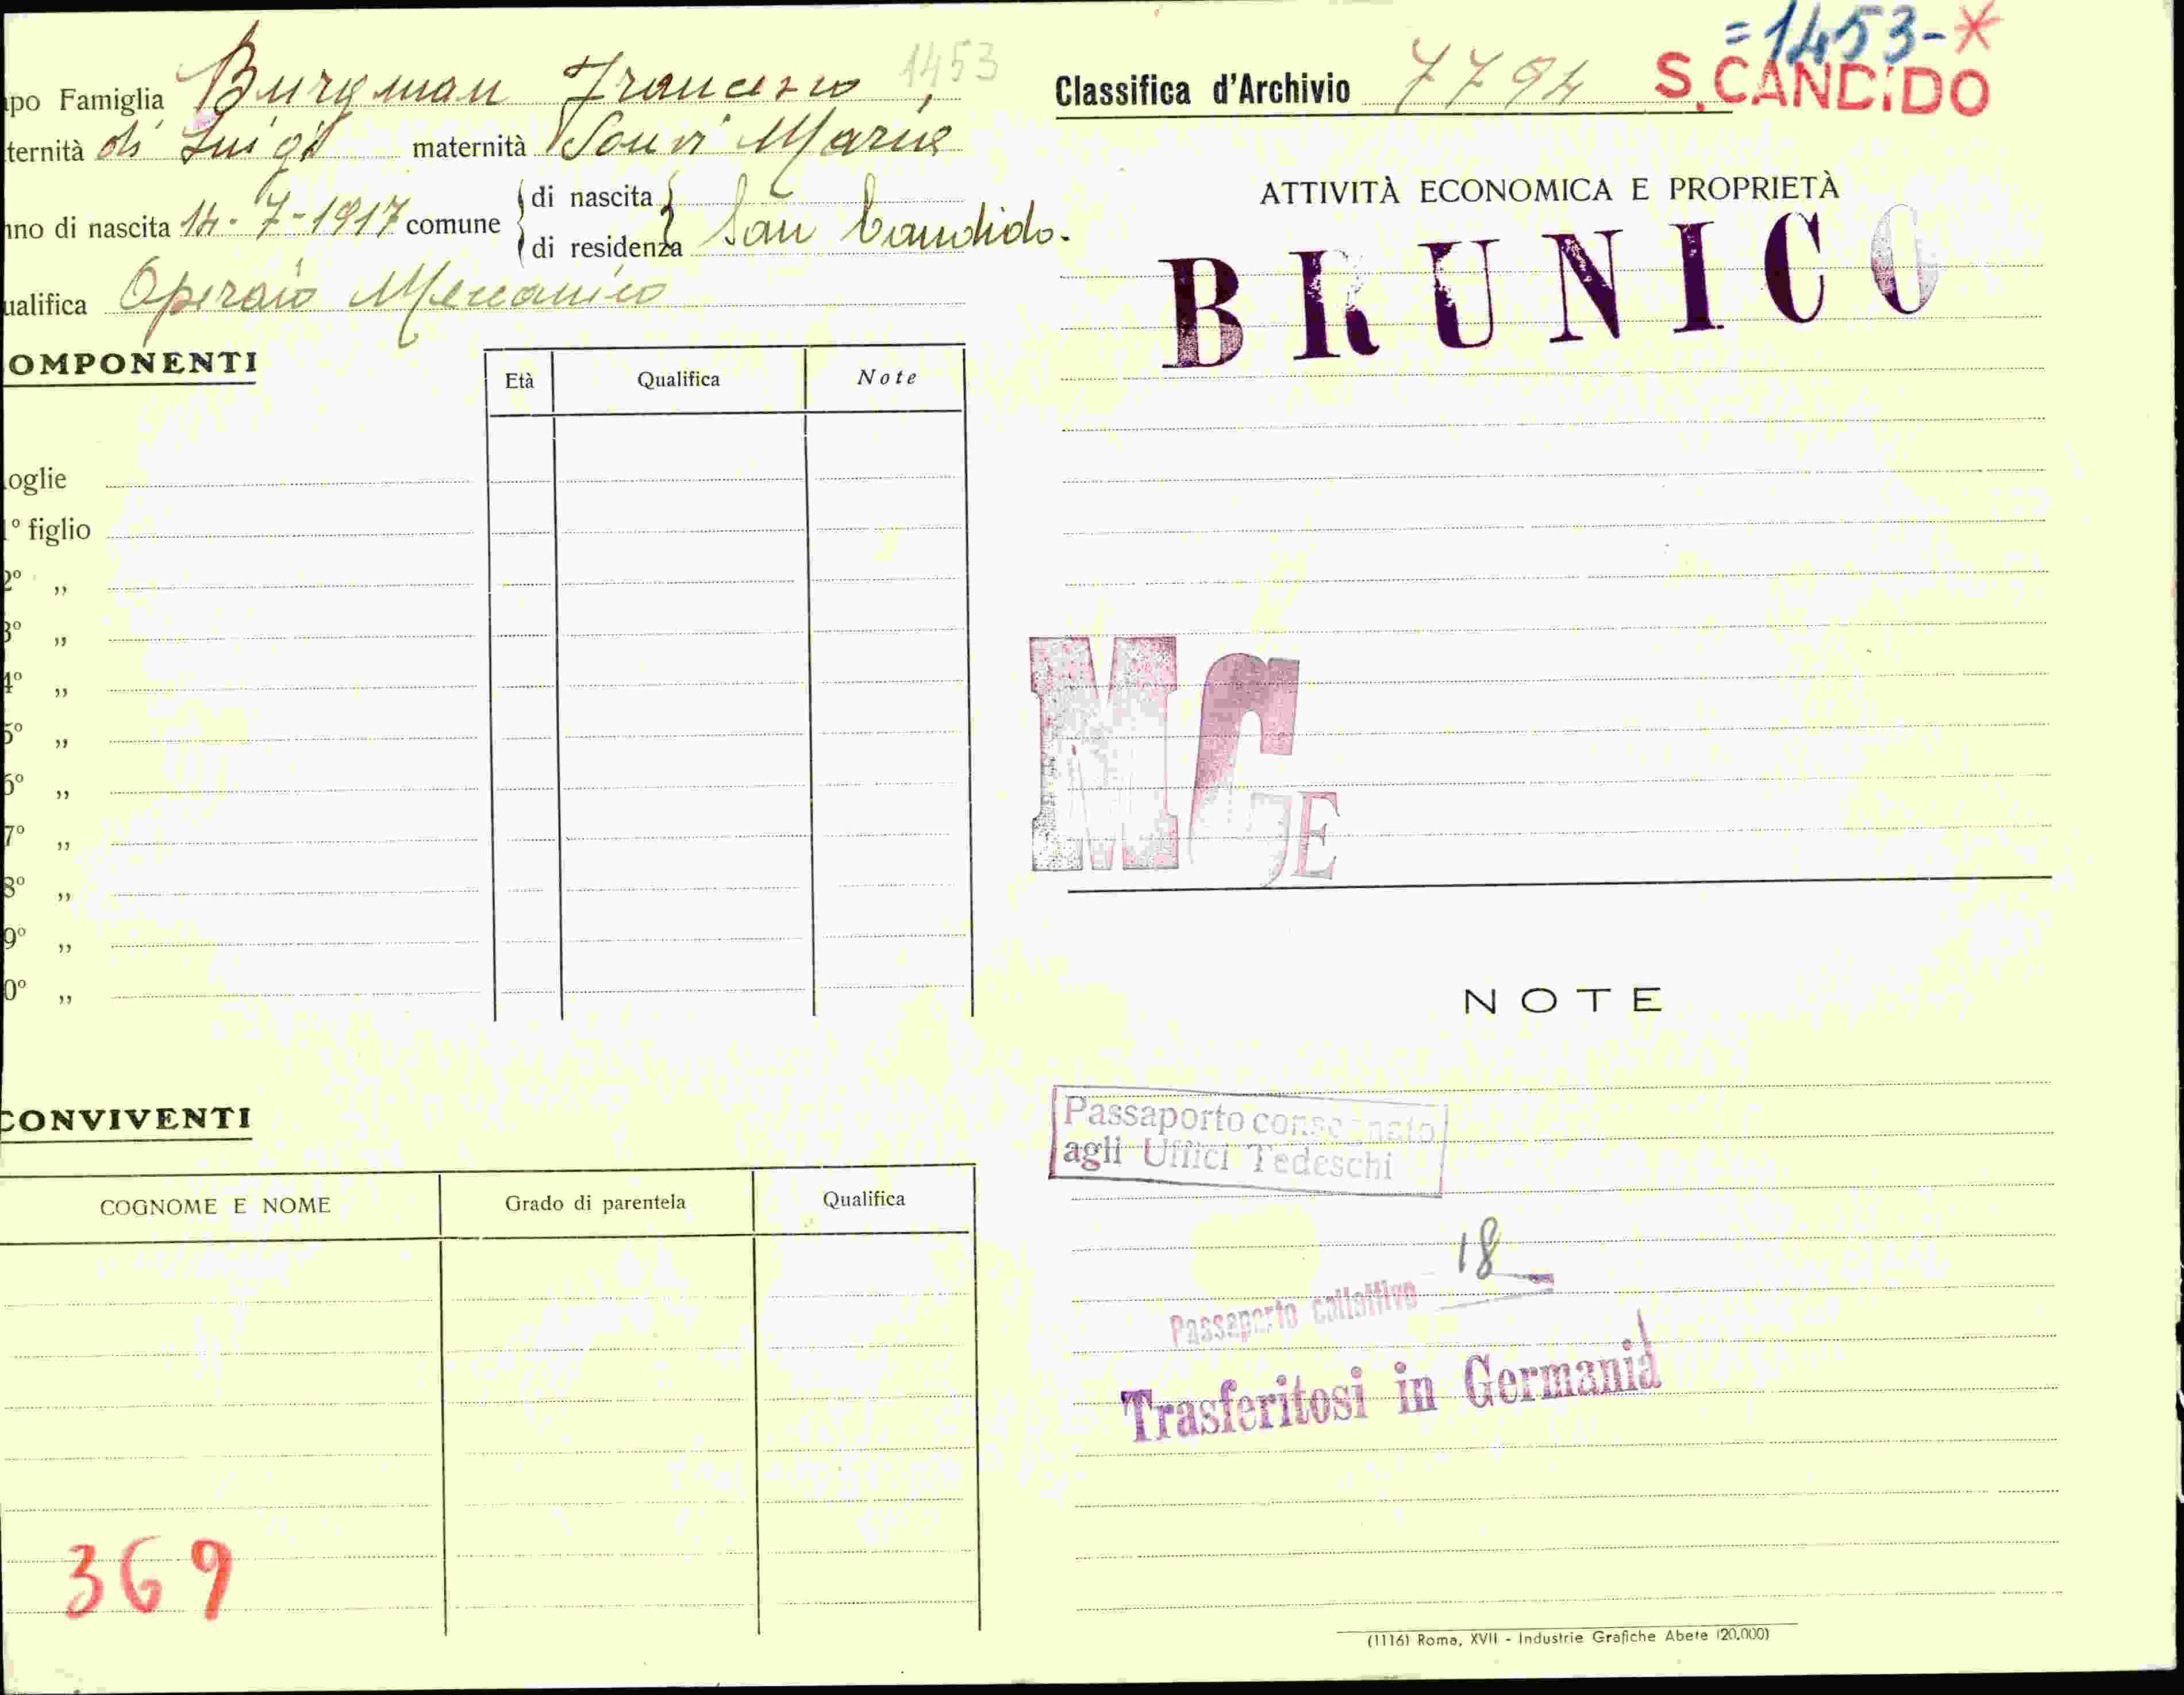 =1453-*
S.CANDIDO
po Famiglia Burgman Francesco 1453
ternità di Luigi maternità Maria
nno di nascita 14-7-1917 comune di nascita di residenza San Candido.
ualifica Operaio Meccanico
OMPONENTI
Età Qualifica Note
oglie
1° figlio
2° ,,
3° ,,
4° ,,
5° ,,
6° ,,
7° ,,
8° ,,
9° ,,
0° ,,
CONVIVENTI
COGNOME E NOME Grado di parentela Qualifica
369
Classifica d'Archivio 7794
ATTIVITÀ ECONOMICA E PROPRIETÀ
BRUNICO
MC
E
NOTE
Passaporto consegnato
agli Uffici Tedeschi
18
Passaporto collettivo
Trasferitosi in Germania
(1116) Roma, XVII - Industrie Grafiche Abete (20.000)